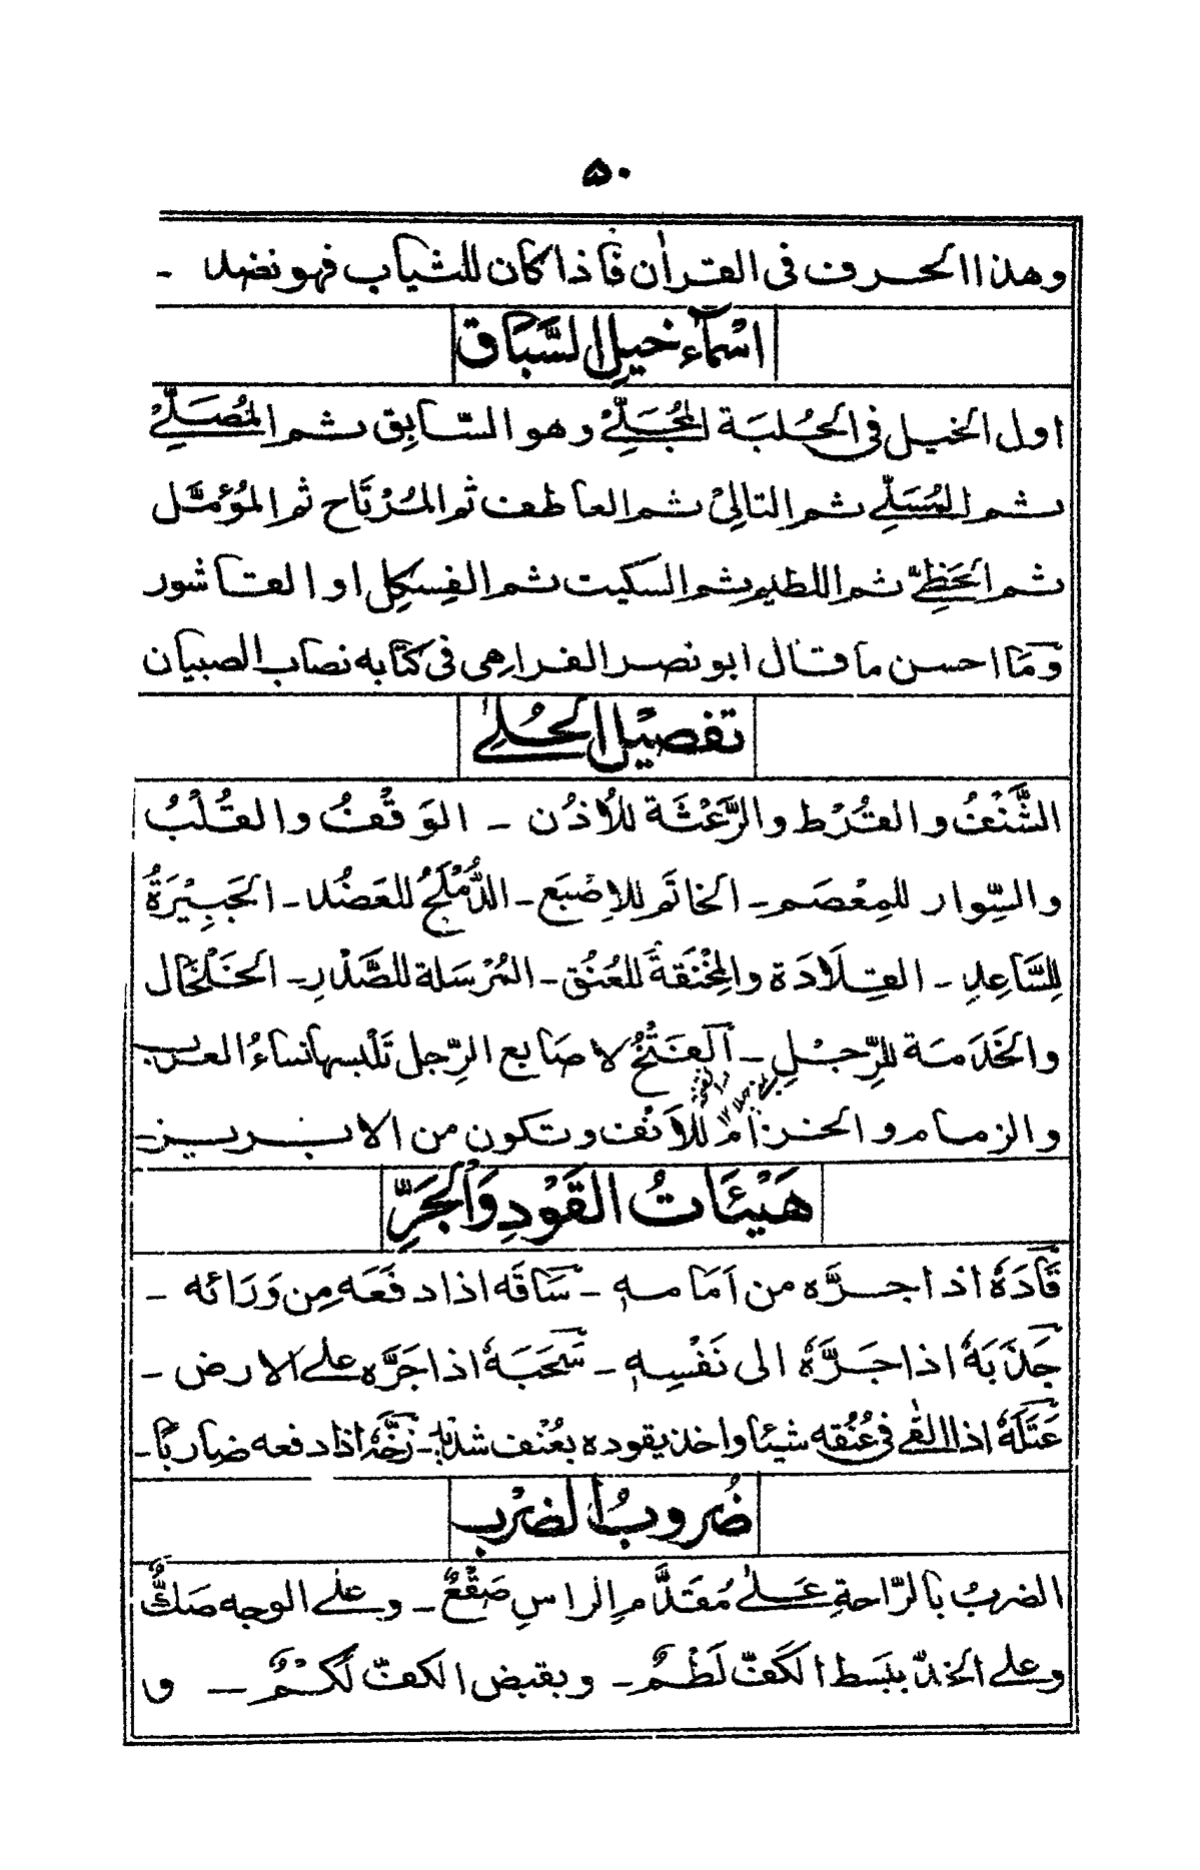 ۵۰
وهذا الحرف فى القراٰن فاذا كان للثياب فهو نضد -
اسْمآء خيل السَّبَاق
اول الخيل فى الحَلبَة المُجَلِّىْ وهو السَّابِق ثم المُصَلِّىْ
ثم المُسَلِّىْ ثم التالِىْ ثم العاطف ثم المُرْتَاح ثم المؤمَّل
ثم الحَظِىّ ثم اللطيم ثم السكيت ثم الفِسكِل او القاشور
ومَا احسن ما قال ابو نصر الفراهى فى كتابه نصاب الصبيان
تفصيل الحُلِىّ
الشَّنْفُ والقُرْط والرَّعْثَة للاُذُن - الوَقْفُ والقُلْبُ
والسِّوار للمِعْصَم - الخاتَم للاِصْبَع - الدُّمْلُجُ للعَضُد - الجَبِيْرَةُ
للسَّاعِدِ - القِلَادَة والمِخْنَقَة للعُنُق - المُرْسَلة للصَّدْرِ - الخَلْخَال
والخَدَمَة للرِّجْلِ - اَلفَتْخُ لاصابع الرِّجل تَلْبسها نساءُ العرب
والزمام والخزام للاَنْف وتكون من الابريز -
هَيْئَاتُ القَوْدِ وَالجَرِّ
قَادَهٗ اذا جرَّه من اَمَامه - سَاقَه اذا دفَعَه مِن وَرَائه -
جَذَبَهٗ اذا جَرَّهٗ الى نَفْسِه - سَحَبَهٗ اذا جَرَّه على الارض -
عَتَلَهٗ اذا القٰى فى عُنُقه شيئا واخذ يقوده بعُنْف شديد - زَخَّهٗ اذا دفعه ضاربًا -
ضُروبُ الضرْب
الضربُ بالرَّاحةِ عَلىٰ مُقَدَّم الراسِ صَقْعٌ - وعلى الوجه صَكٌّ
وعلى الخدّ ببَسط الكَفّ لَطْمٌ - وبقبض الكفّ لَكْمٌ - و